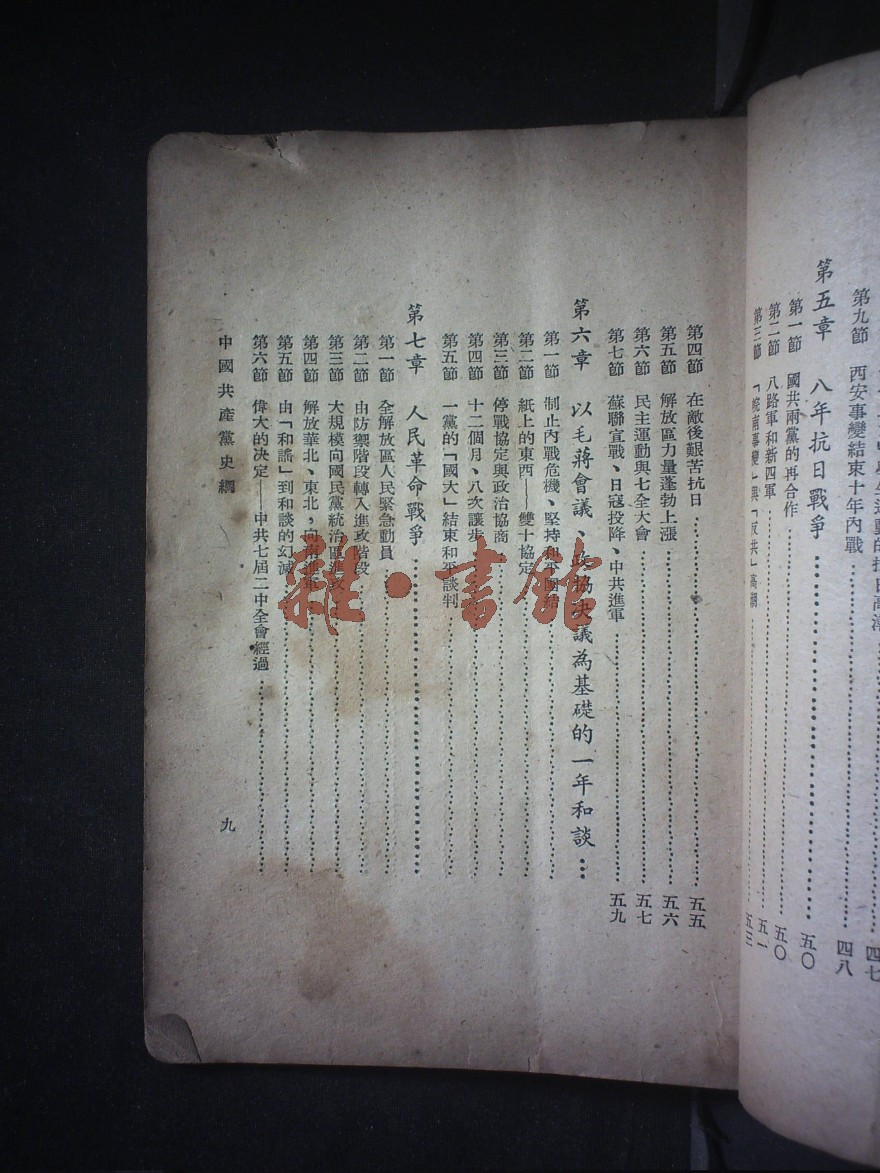 第九節 西安事變結束十年內戰 四八
第五章 八年抗日戰爭 五〇
第一節 國共兩黨的再合作 五〇
第二節 八路軍和新四軍 五一
第三節 「皖南事變」與「反共」高潮 五三
第四節 在敵後艱苦抗日 五五
第五節 解放區力量蓬勃上漲 五六
第六節 民主運動與七全大會 五七
第七節 蘇聯宣戰、日寇投降、中共進軍 五九
第六章 以毛蔣會議、政協決議為基礎的一年和談
第一節 制止內戰危機、堅持和平團結
第二節 紙上的東西——雙十協定
第三節 停戰協定與政治協商
第四節 十二個月、八次讓步
第五節 一黨的「國大」結束和平談判
第七章 人民革命戰爭
第一節 全解放區人民緊急動員
第二節 由防禦階段轉入進攻階段
第三節 大規模向國民黨統治區進攻
第四節 解放華北、東北，向南進軍
第五節 由「和謠」到和談的幻滅
第六節 偉大的決定——中共七屆二中全會經過
中國共產黨史綱
九
雜·書館